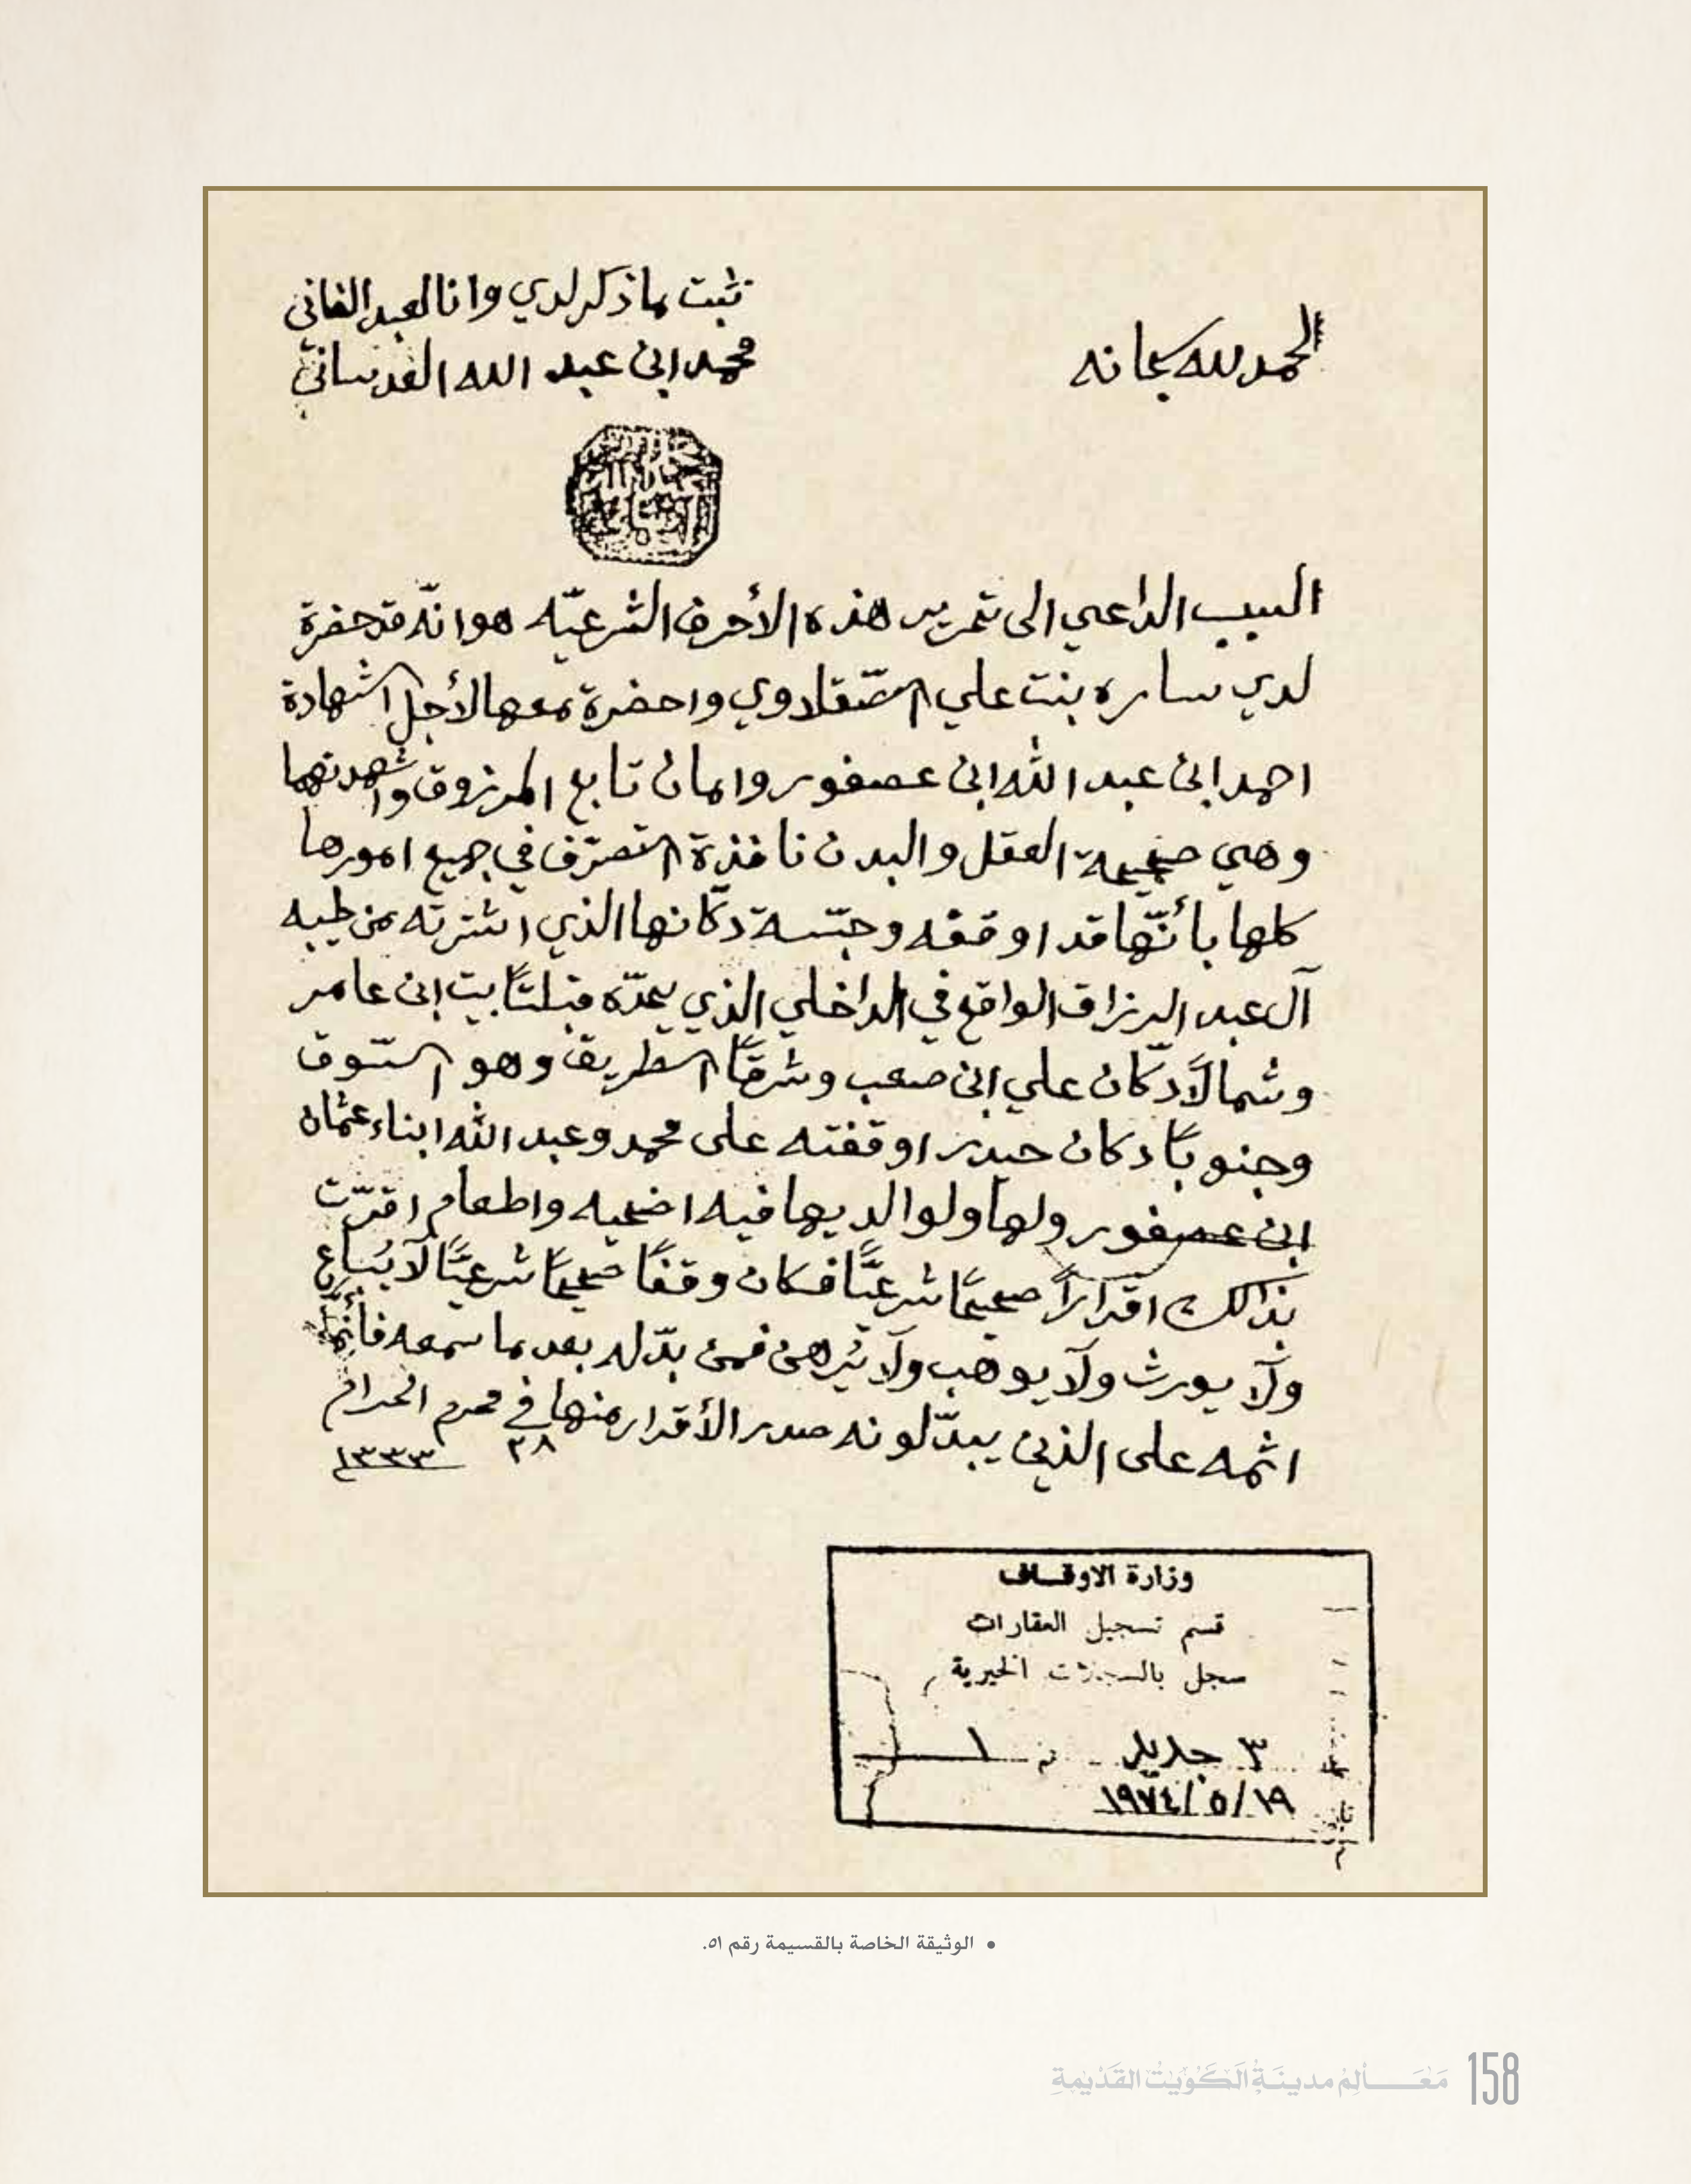 الحمد لله سبحانه
ثبت ما ذكر لدي وانا العبد الفاني
محمد ابن عبد الله العدساني
السبب الداعي الى تحرير هذه الأحرف الشرعيّه هو انّه قد حضرة
لدي ساره بنت علي الصّقلاوي واحضرة معها لأجل الشهادة
احمد ابن عبد الله ابن عصفور وامان تابع المرزوق واشهدتهما
وهي صحيحة العقل والبدن نافذة التصرّف في جميع امورها
كلها بأنّها قد اوقفه وحبّسة دكّانها الذي اشترته من طيبه
آل عبد الرزاق الواقع في الداخلي الذي يحدّه قبلتاً بيت ابن عامر
وشمالاً دكّان علي ابن صعب وشرقاً الطريق وهو السّوق
وجنوباً دكان حيدر اوقفته على محمد وعبد الله ابناء عثمان
ابن عصفور ولها ولوالديها فيه اضحيه واطعام اقرّت
بذالك اقراراً صحيحاً شرعيّاً فكان وقفاً صحيحاً شرعيّاً لا يُباع
ولا يورث ولا يوهب ولا يُرهن فمن بدّله بعد ما سمعه فأنّما
اثمه على الذين يبدّلونه صدر الأقرار منها في محرم الحرام
٢٨ ١٣٣٣
وزارة الاوقاف
قسم تسجيل العقارات
سجل بالسجلات الخيرية
٣ جديد ١
١٩/٥/١٩٧٤
• الوثيقة الخاصة بالقسيمة رقم ٥١.
158 مَعَـالِمُ مدينَةِ الكُوَيْت القَدْيمةِ